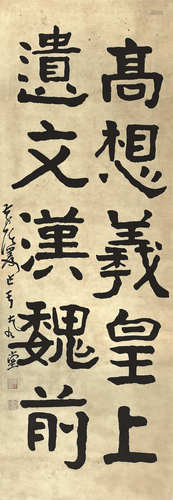 高想羲皇上
遺文漢魏前